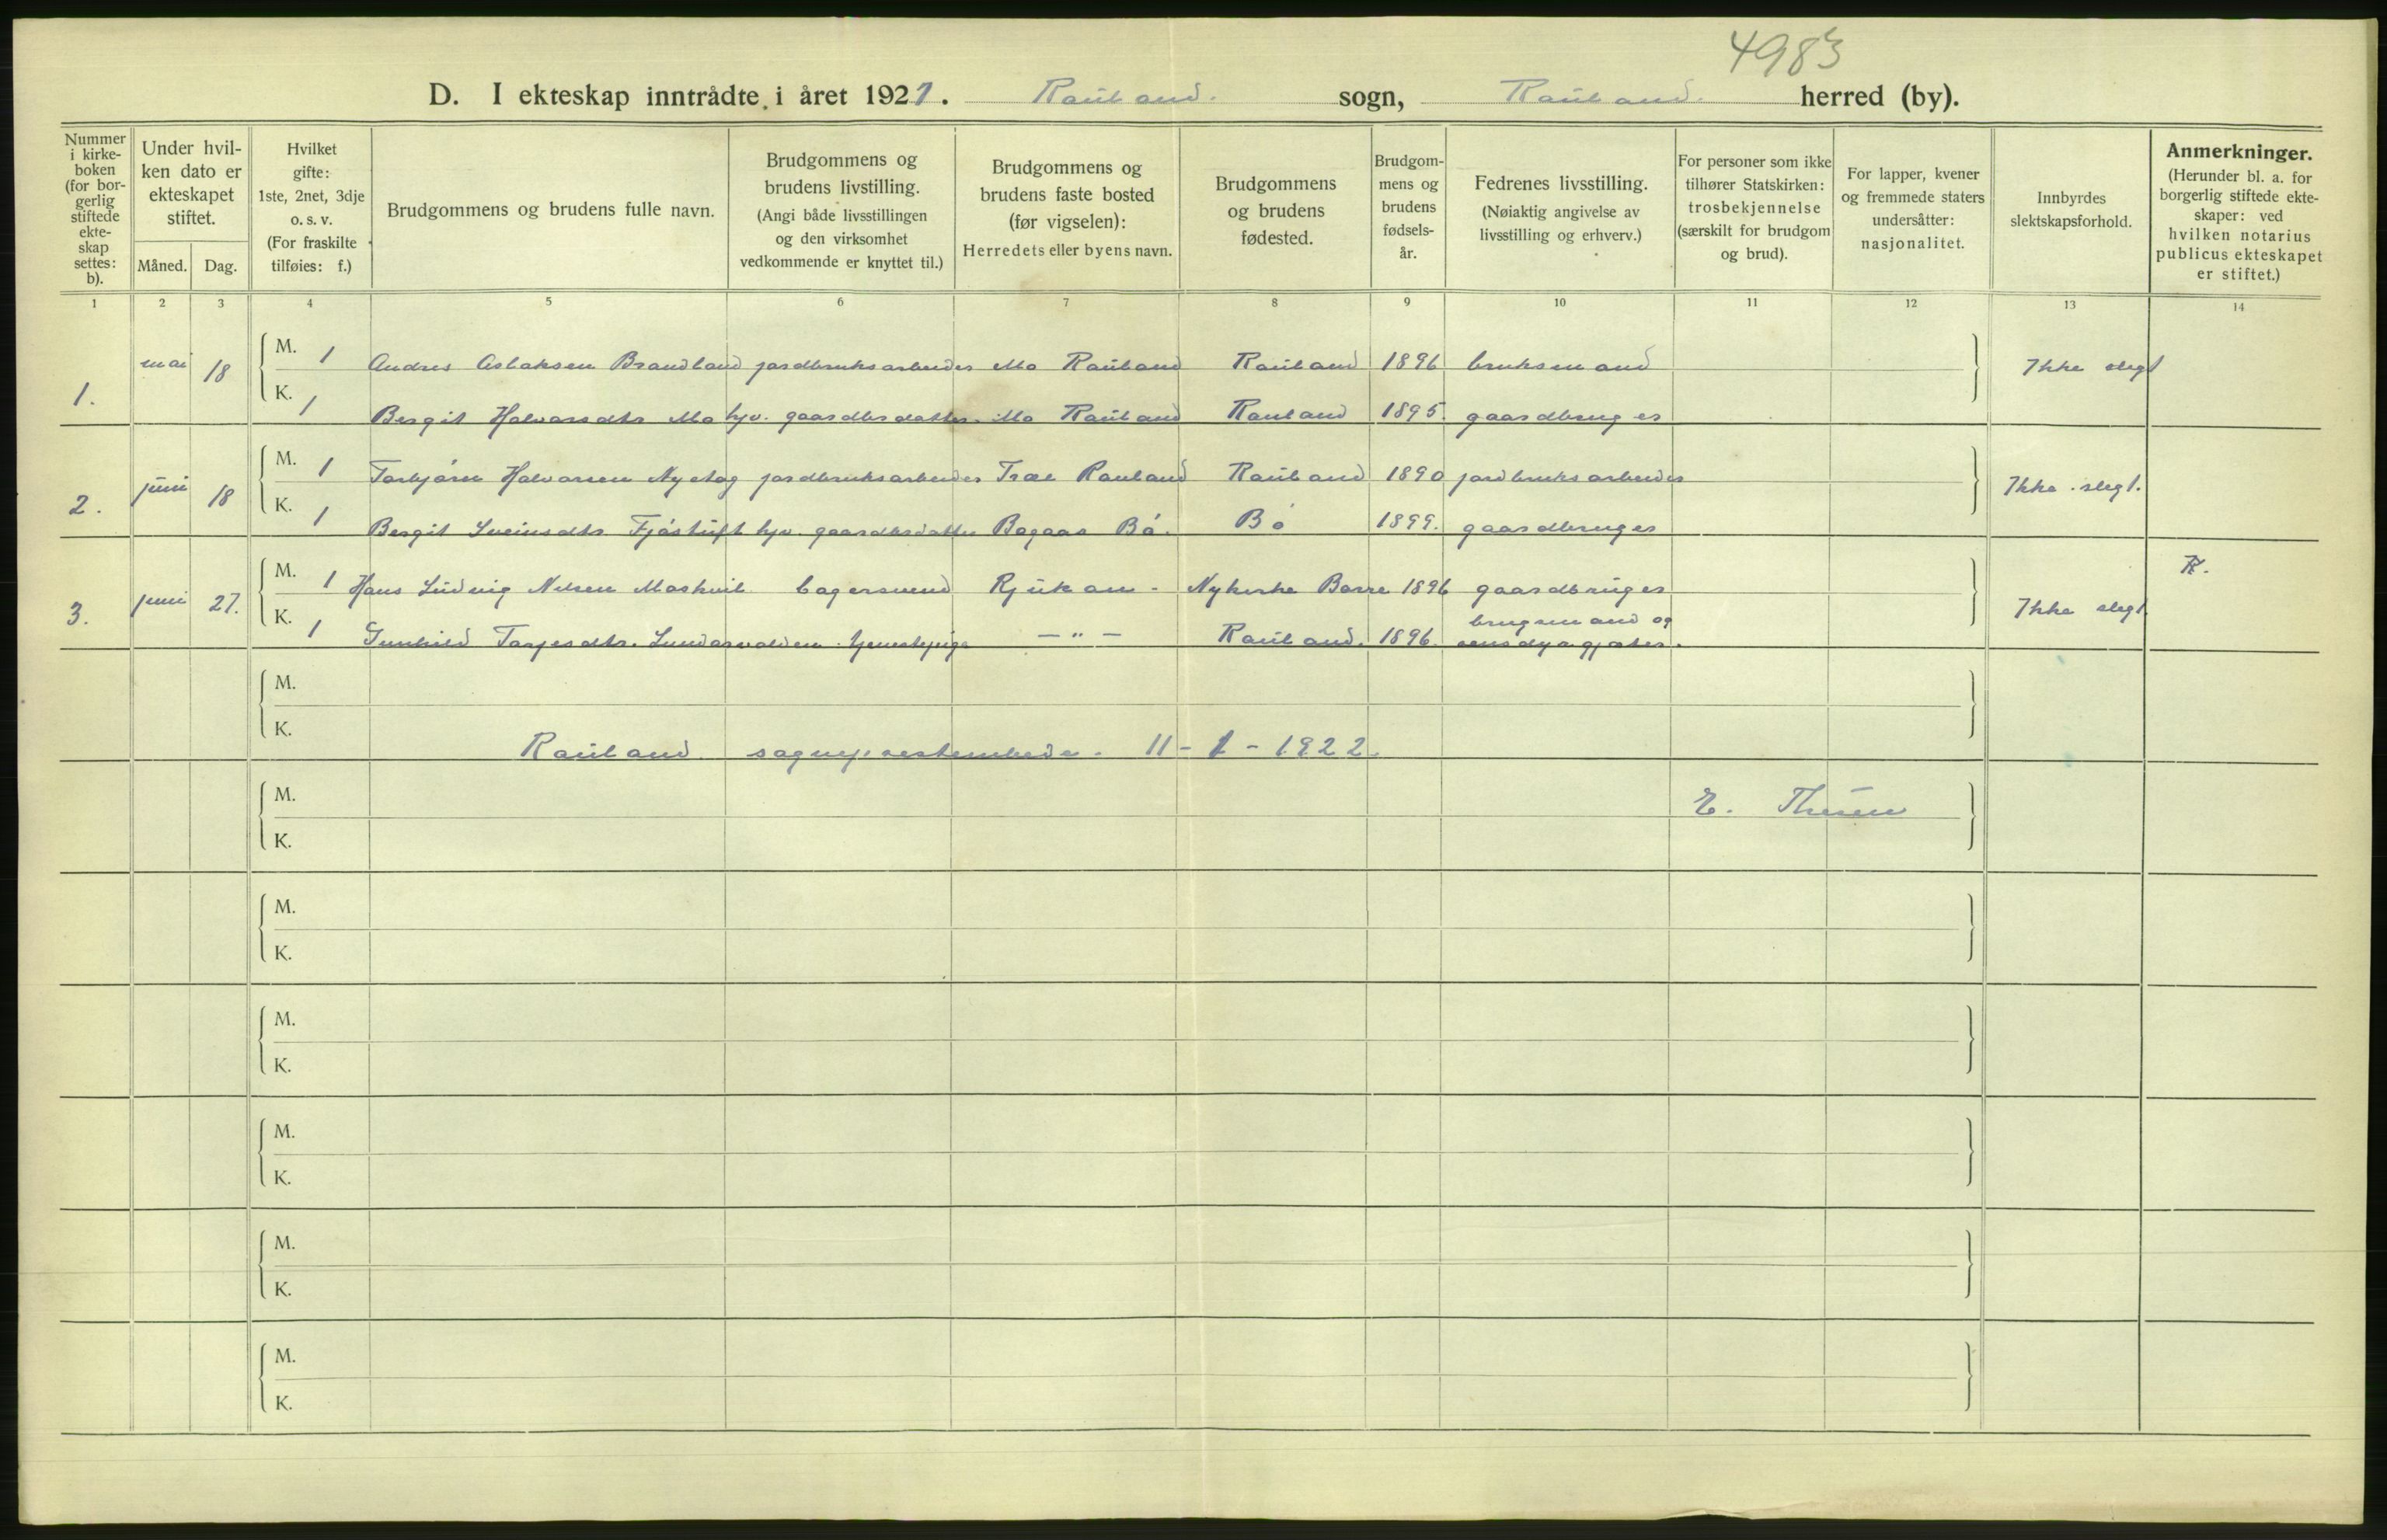 4983
D. I ekteskap inntrådte i året 1921. Rauland. sogn, Rauland. herred (by).
Nummer i kirke-boken (for bor-gerlig stiftede ekte-skap settes: b).
Under hvil-ken dato er ekteskapet stiftet.
Måned. Dag.
Hvilket gifte: 1ste, 2net, 3dje o. s. v. (For fraskilte tilføies: f.)
Brudgommens og brudens fulle navn.
Brudgommens og brudens livstilling. (Angi både livsstillingen og den virksomhet vedkommende er knyttet til.)
Brudgommens og brudens faste bosted (før vigselen): Herredets eller byens navn.
Brudgommens og brudens fødested.
Brudgom-mens og brudens fødsels-år.
Fedrenes livsstilling. (Nøiaktig angivelse av livsstilling og erhverv.)
For personer som ikke tilhører Statskirken: trosbekjennelse (særskilt for brudgom og brud).
For lapper, kvener og fremmede staters undersåtter: nasjonalitet.
Innbyrdes slektskapsforhold.
Anmerkninger. (Herunder bl. a. for borgerlig stiftede ekte-skaper: ved hvilken notarius publicus ekteskapet er stiftet.)
1 2 3 4 5 6 7 8 9 10 11 12 13 14
1. mai 18 M. 1 Andres Aslaksen Brandland jordbruksarbeider Mo Rauland Rauland 1896 bruksmand Ikke slegt
K. 1 Bergit Halvorsdtr Mo hjv. gaardbrdatter. Mo Rauland Rauland 1895. gaardbruger
2. juni 18 M. 1 Torbjörn Halvorsen Nyehag jordbruksarbeider Træe Rauland Rauland 1890 jordbruksarbeider Ikke slegt.
K. 1 Bergit Sveinsdtr Fjöstuft hjv. gaardbrdatter Bogaas Bö. Bö 1899. gaardbruger
3. juni 27. M. 1 Hans Ludvig Nilsen bagersvend Rjukan - Nykirke Borre 1896 gaardbruger Ikke slegt R.
K. 1 Gunhild Tarjesdtr. tjenestepige — " — Rauland. 1896. brugsmand og
M.
K.
Rauland sogneprestembede. 11-1-1922.
M. E. Thesen
K.
M.
K.
M.
K.
M.
K.
M.
K.
M.
K.